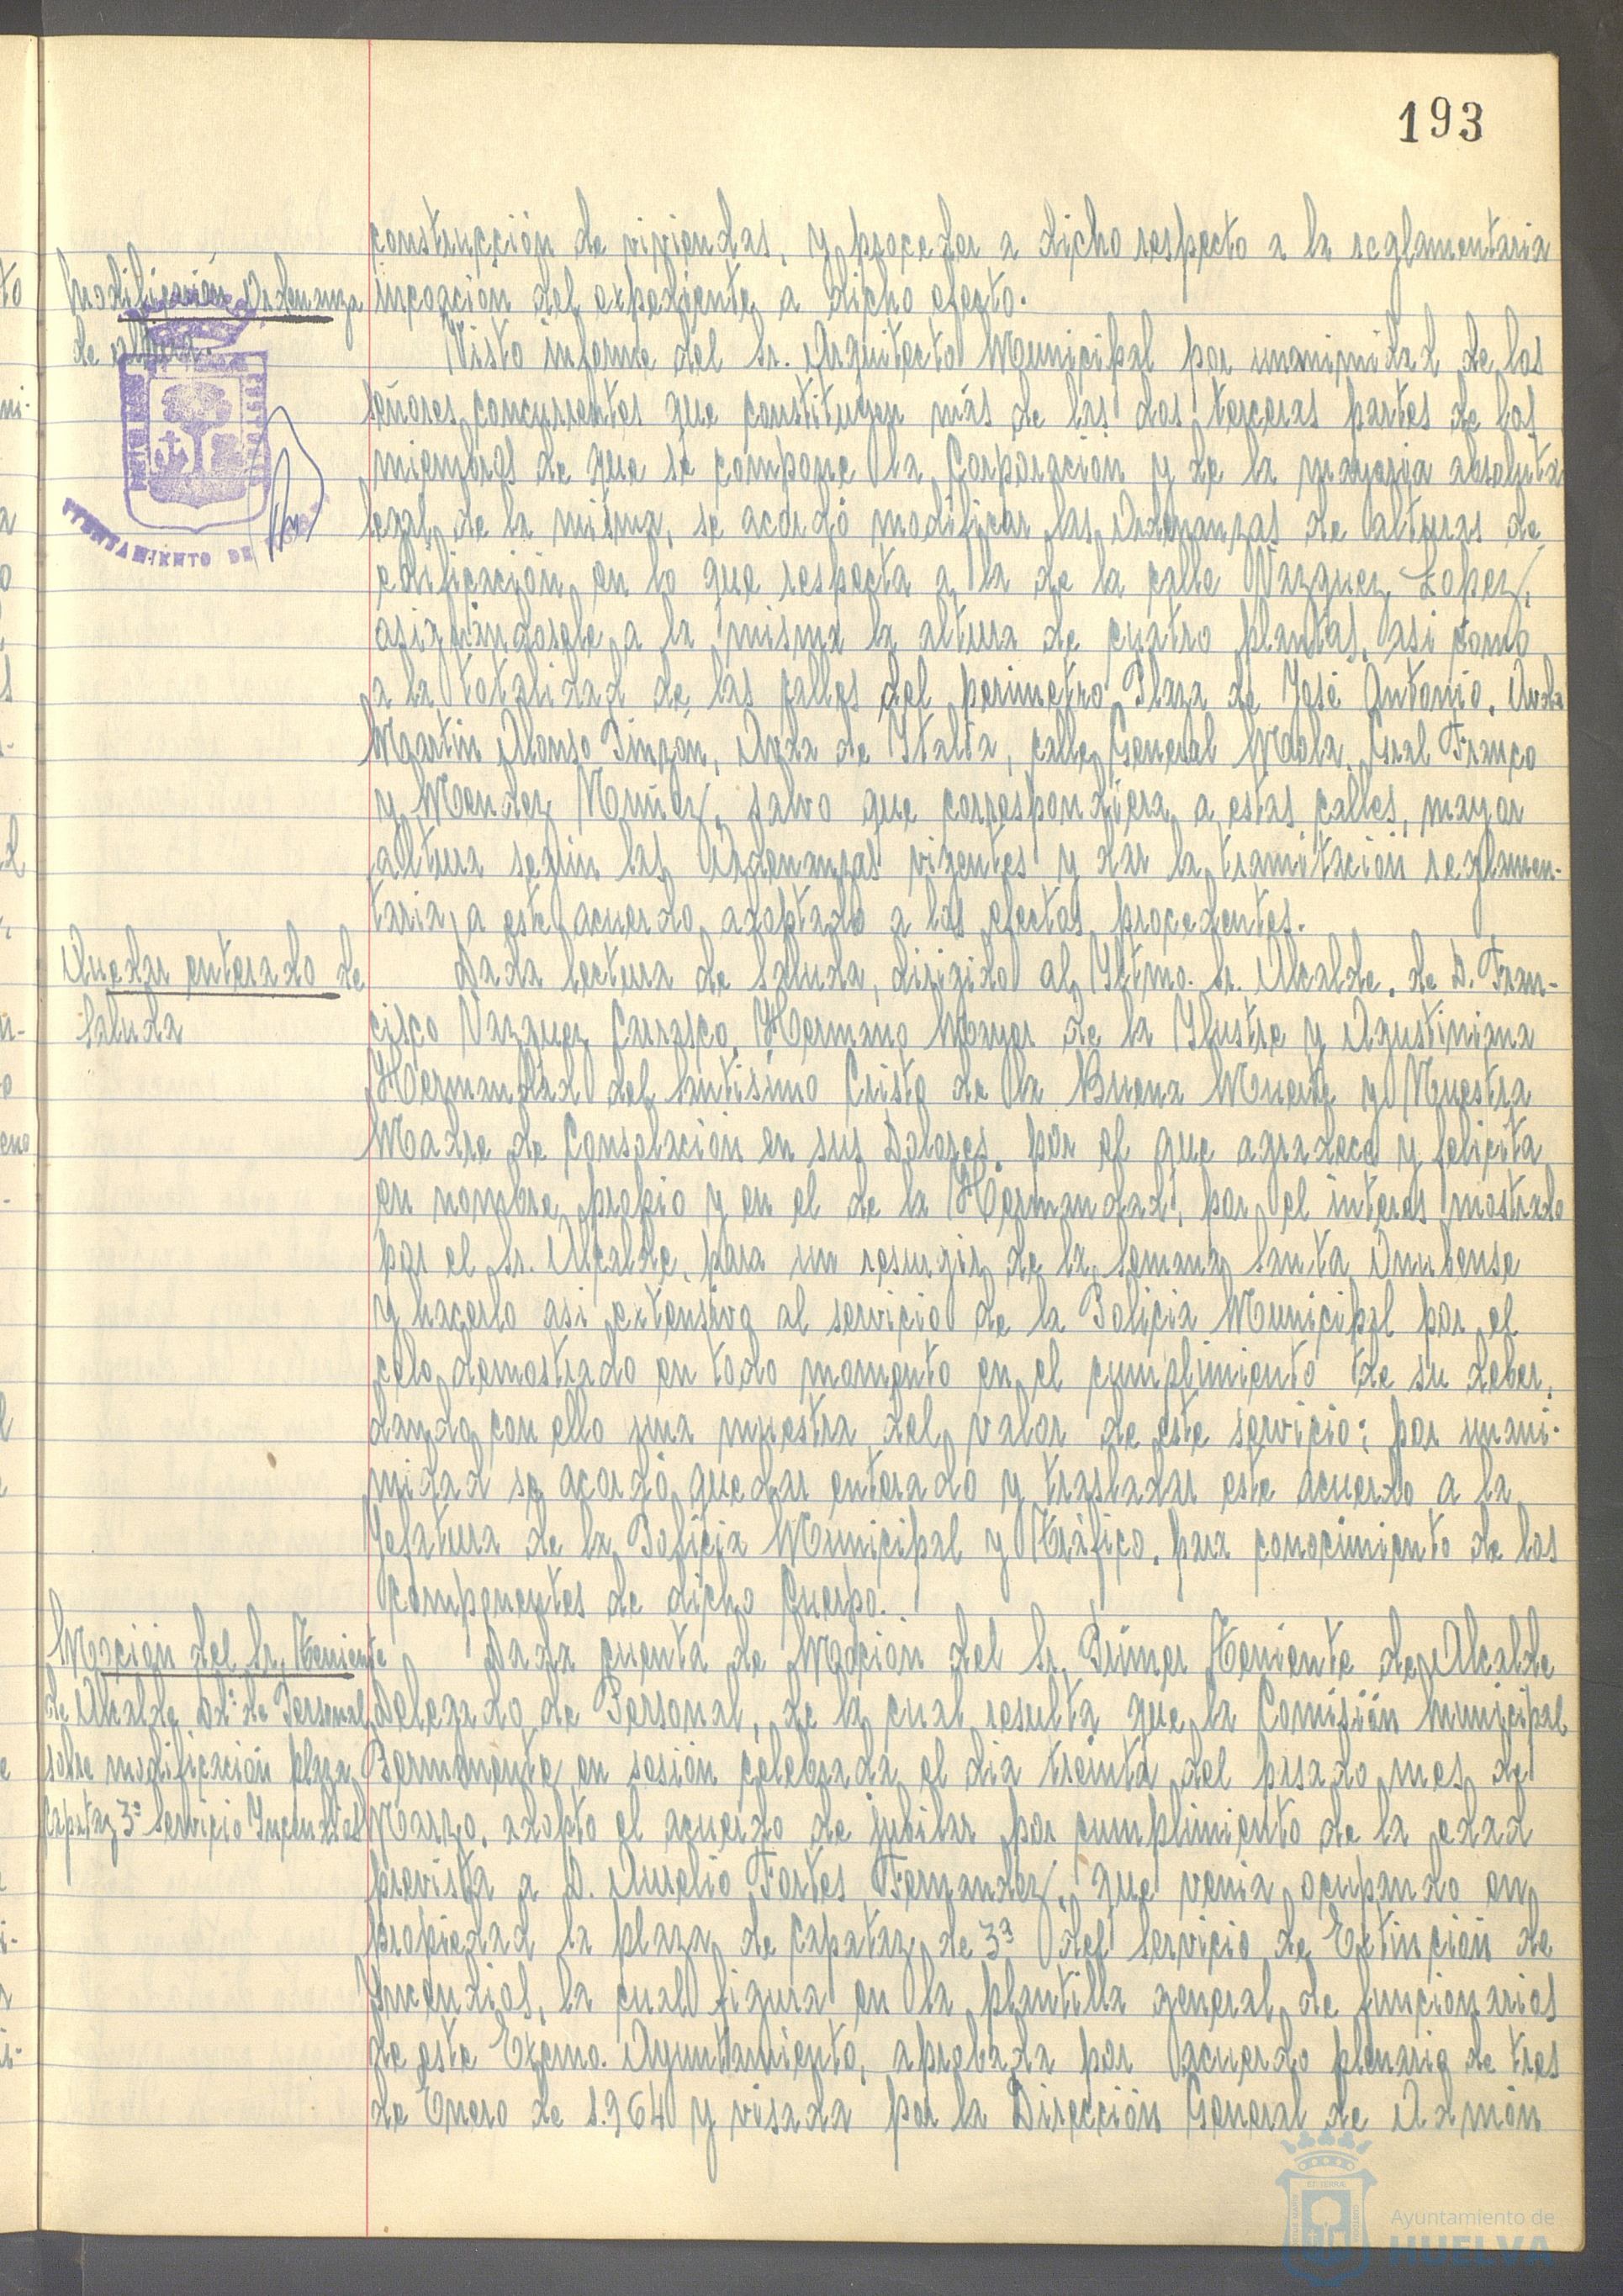 193
construcción de viviendas, y proceder a dicho respecto a la reglamentaria
Modificación Ordenanza
de altura.
incoación del expediente a dicho efecto.
Visto informe del Sr. Arquitecto Municipal por unanimidad de los
señores concurrentes que constituyen más de las dos terceras partes de los
miembros de que se compone la Corporación y de la mayoria absoluta
legal de la misma, se acordó modificar las Ordenanzas de alturas de
AYUNTAMIENTO DE
edificación en lo que respecta a la de la calle Vazquez Lopez,
asignándosele a la misma la altura de cuatro plantas, asi como
a la totalidad de las calles del perimetro Plaza de José Antonio, Avda
Martin Alonso Pinzón, Avda de Italia, calle General Mola, Gral Franco
y Mendez Nuñez, salvo que correspondiera a estas calles, mayor
altura según las Ordenanzas vigentes y dar la tramitación reglamen-
taria a este acuerdo adoptado a los efectos procedentes.
Quedar enterado de
Saluda
Dada lectura de Saluda, dirigido al Iltmo. Sr. Alcalde, de D. Fran-
cisco Vazquez Carrasco, Hermano Mayor de la Ilustre y Agustiniana
Hermandad del Santisimo Cristo de la Buena Muerte y Nuestra
Madre de Consolación en sus Dolores, por el que agradece y felicita
en nombre propio y en el de la Hermandad, por el interes mostrado
por el Sr. Alcalde, para un resurgir de la Semana Santa Onubense
y hacerlo asi extensivo al servicio de la Policia Municipal por el
celo demostrado en todo momento en el cumplimiento de su deber,
dando con ello una muestra del valor de este servicio; por unani-
midad se acordó quedar enterado y trasladar este acuerdo a la
Jefatura de la Policia Municipal y Tráfico, para conocimiento de los
componentes de dicho Cuerpo.
Moción del Sr. Teniente
de Alcalde Dº. de Personal
sobre modificación plaza
Capataz 3º Servicio Incendios
Dada cuenta de Moción del Sr. Primer Teniente de Alcalde
Delegado de Personal, de la cual resulta que la Comisión Municipal
Permanente en sesión celebrada el dia treinta del pasado mes de
Marzo, adopto el acuerdo de jubilar por cumplimiento de la edad
prevista a D. Aurelio Fortes Fernandez, que venia ocupando en
propiedad la plaza de Capataz de 3ª del Servicio de Extinción de
Incendios, la cual figura en la plantilla general de funcionarios
de este Excmo. Ayuntamiento, aprobada por acuerdo plenario de tres
de Enero de 1.964 y visada por la Dirección General de Admón
Ayuntamiento de
HUELVA